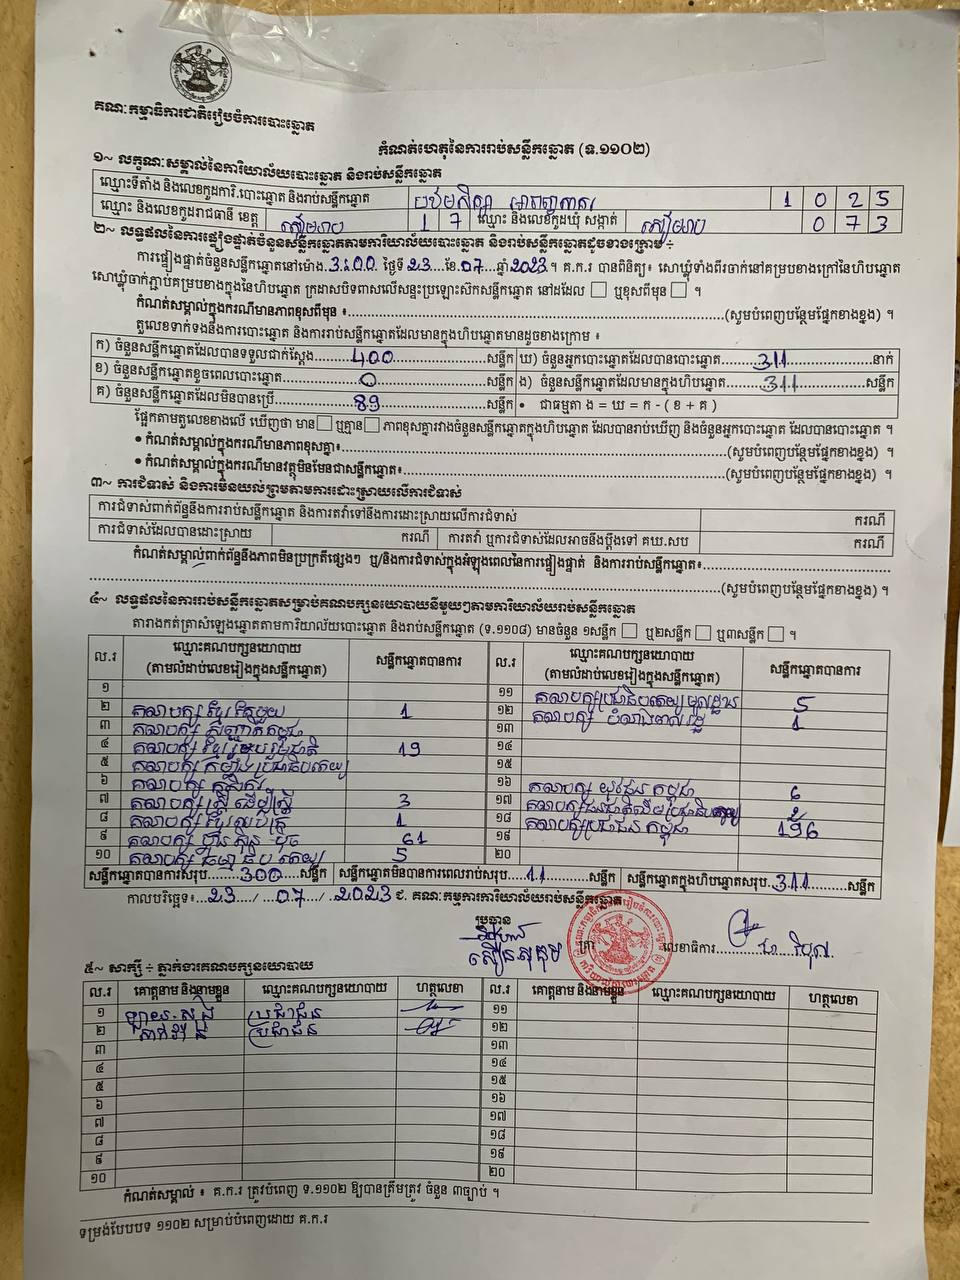 គណៈកម្មាធិការជាតិរៀបចំការបោះឆ្នោត
កំណត់ហេតុនៃការរាប់សន្លឹកឆ្នោត (ទ.១១០២)
១~ លក្ខណៈសម្គាល់នៃការិយាល័យបោះឆ្នោត និងរាប់សន្លឹកឆ្នោត
ឈ្មោះទីតាំង និងលេខកូដការិ.បោះឆ្នោត និងរាប់សន្លឹកឆ្នោត 1 0 2 5
ឈ្មោះ និងលេខកូដរាជធានី ខេត្ត សៀមរាប 1 7 ឈ្មោះ និងលេខកូដឃុំ សង្កាត់ សៀមរាប 0 7 3
២~ លទ្ធផលនៃការផ្ទៀងផ្ទាត់ចំនួនសន្លឹកឆ្នោតតាមការិយាល័យបោះឆ្នោត និងរាប់សន្លឹកឆ្នោតដូចខាងក្រោម ÷
ការផ្ទៀងផ្ទាត់ចំនួនសន្លឹកឆ្នោតនៅម៉ោង 3:00 ថ្ងៃទី 23 ខែ 07 ឆ្នាំ 2023 ។ គ.ក.រ បានពិនិត្យ៖ សោឃ្លុំទាំងពីរចាក់នៅគម្របខាងក្រៅនៃហិបឆ្នោត
សោឃ្លុំចាក់ភ្ជាប់គម្របខាងក្នុងនៃហិបឆ្នោត ក្រដាសបិទពាសលើសន្ទះប្រឡោះស៊កសន្លឹកឆ្នោត នៅដដែល □ ឬខុសពីមុន □ ។
កំណត់សម្គាល់ក្នុងករណីមានភាពខុសពីមុន ៖ (សូមបំពេញបន្ថែមផ្នែកខាងខ្នង) ។
តួលេខទាក់ទងនឹងការបោះឆ្នោត និងការរាប់សន្លឹកឆ្នោតដែលមានក្នុងហិបឆ្នោតមានដូចខាងក្រោម ៖
ក) ចំនួនសន្លឹកឆ្នោតដែលបានទទួលជាក់ស្តែង 400 សន្លឹក ឃ) ចំនួនអ្នកបោះឆ្នោតដែលបានបោះឆ្នោត 311 នាក់
ខ) ចំនួនសន្លឹកឆ្នោតខូចពេលបោះឆ្នោត 0 សន្លឹក ង) ចំនួនសន្លឹកឆ្នោតដែលមានក្នុងហិបឆ្នោត 311 សន្លឹក
គ) ចំនួនសន្លឹកឆ្នោតដែលមិនបានប្រើ 89 សន្លឹក • ជាធម្មតា ង = ឃ = ក - ( ខ + គ )
ផ្អែកតាមតួលេខខាងលើ ឃើញថា មាន □ ឬគ្មាន □ ភាពខុសគ្នារវាងចំនួនសន្លឹកឆ្នោតក្នុងហិបឆ្នោត ដែលបានរាប់ឃើញ និងចំនួនអ្នកបោះឆ្នោត ដែលបានបោះឆ្នោត ។
• កំណត់សម្គាល់ក្នុងករណីមានភាពខុសគ្នា៖ (សូមបំពេញបន្ថែមផ្នែកខាងខ្នង) ។
• កំណត់សម្គាល់ក្នុងករណីមានវត្ថុមិនមែនជាសន្លឹកឆ្នោត៖ (សូមបំពេញបន្ថែមផ្នែកខាងខ្នង) ។
៣~ ការជំទាស់ និងការមិនយល់ព្រមតាមការដោះស្រាយលើការជំទាស់
ការជំទាស់ពាក់ព័ន្ធនឹងការរាប់សន្លឹកឆ្នោត និងការតវ៉ាទៅនឹងការដោះស្រាយលើការជំទាស់ ករណី
ការជំទាស់ដែលបានដោះស្រាយ ករណី ការតវ៉ា ឬការជំទាស់ដែលអាចនឹងប្តឹងទៅ គឃ.សប ករណី
កំណត់សម្គាល់ពាក់ព័ន្ធនឹងភាពមិនប្រក្រតីផ្សេងៗ ឬ/និងការជំទាស់ក្នុងអំឡុងពេលនៃការផ្ទៀងផ្ទាត់ និងការរាប់សន្លឹកឆ្នោត៖
(សូមបំពេញបន្ថែមផ្នែកខាងខ្នង) ។
៤~ លទ្ធផលនៃការរាប់សន្លឹកឆ្នោតសម្រាប់គណបក្សនយោបាយនីមួយៗតាមការិយាល័យរាប់សន្លឹកឆ្នោត
តារាងកត់ត្រាសំឡេងឆ្នោតតាមការិយាល័យបោះឆ្នោត និងរាប់សន្លឹកឆ្នោត (ទ.១១០៨) មានចំនួន ១សន្លឹក □ ឬ២សន្លឹក □ ឬ៣សន្លឹក □ ។
ល.រ ឈ្មោះគណបក្សនយោបាយ (តាមលំដាប់លេខរៀងក្នុងសន្លឹកឆ្នោត) សន្លឹកឆ្នោតបានការ ល.រ ឈ្មោះគណបក្សនយោបាយ (តាមលំដាប់លេខរៀងក្នុងសន្លឹកឆ្នោត) សន្លឹកឆ្នោតបានការ
១ ១១ គណបក្សប្រជាធិបតេយ្យមូលដ្ឋាន 5
២ គណបក្ស ខ្មែរតែមួយ 1 ១២ គណបក្ស 1
៣ គណបក្ស ១៣
៤ គណបក្ស ខ្មែររួបរួមជាតិ 19 ១៤
៥ គណបក្ស កម្លាំងប្រជាធិបតេយ្យ ១៥
៦ គណបក្ស កសិករ ១៦ គណបក្ស យុវជនកម្ពុជា 6
៧ គណបក្សស្ត្រីដើម្បីស្ត្រី 3 ១៧ គណបក្សជនជាតិដើមប្រជាធិបតេយ្យ 2
៨ គណបក្ស 1 ១៨ គណបក្សប្រជាជន កម្ពុជា 196
៩ គណបក្ស ហ្វ៊ុនស៊ិនប៉ិច 61 ១៩
១០ គណបក្ស ធម្មាធិបតេយ្យ 5 ២០
សន្លឹកឆ្នោតបានការសរុប 300 សន្លឹក សន្លឹកឆ្នោតមិនបានការពេលរាប់សរុប 11 សន្លឹក សន្លឹកឆ្នោតក្នុងហិបឆ្នោតសរុប 311 សន្លឹក
កាលបរិច្ឆេទ៖ 23 / 07 / 2023 ជ. គណៈកម្មការការិយាល័យរាប់សន្លឹកឆ្នោត
ប្រធាន
ត្រា លេខាធិការ
៥~ សាក្សី ÷ ភ្នាក់ងារគណបក្សនយោបាយ
ល.រ គោត្តនាម និងនាមខ្លួន ឈ្មោះគណបក្សនយោបាយ ហត្ថលេខា ល.រ គោត្តនាម និងនាមខ្លួន ឈ្មោះគណបក្សនយោបាយ ហត្ថលេខា
១ ប្រជាជន ១១
២ ប្រជាជន ១២
៣ ១៣
៤ ១៤
៥ ១៥
៦ ១៦
៧ ១៧
៨ ១៨
៩ ១៩
១០ ២០
កំណត់សម្គាល់ ៖ គ.ក.រ ត្រូវបំពេញ ទ.១១០២ ឱ្យបានត្រឹមត្រូវ ចំនួន ៣ច្បាប់ ។
ទម្រង់បែបបទ ១១០២ សម្រាប់បំពេញដោយ គ.ក.រ